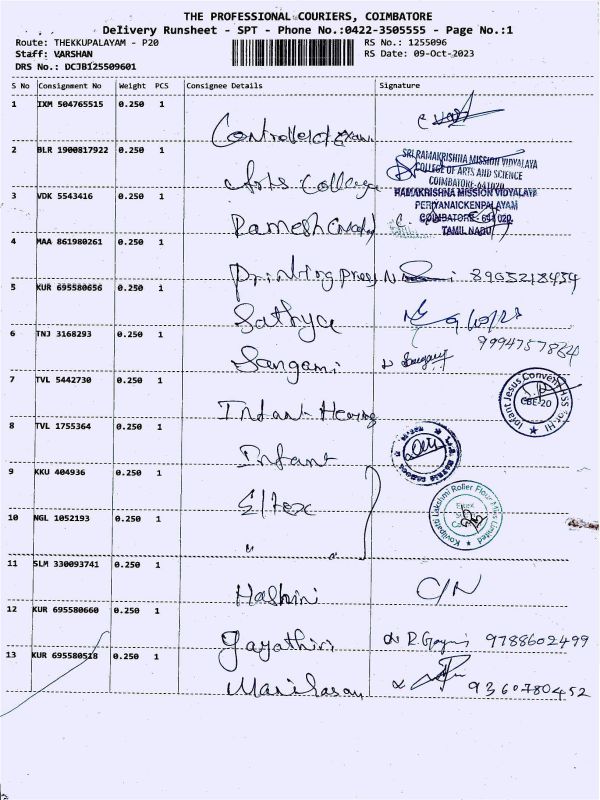 THE PROFESSIONAL COURIERS, COIMBATORE
Delivery Runsheet - SPT - Phone No.:0422-3505555 - Page No.:1
Route: THEKKUPALAYAM - P20
RS No.: 1255096
Staff: VARSHAN
RS Date: 09-Oct-2023
DRS No.: DCJB125509601
S No Consignment No Weight PCS Consignee Details Signature
1 IXM 504765515 0.250 1
Controller of Exam
2 BLR 1900817922 0.250 1
SRI RAMAKRISHNA MISSION VIDYALAYA
COLLEGE OF ARTS AND SCIENCE
COIMBATORE-641020
Arts College
3 VDK 5543416 0.250 1
RAMAKRISHNA MISSION VIDYALAYA
PERIYANAICKENPALAYAM
COIMBATORE - 641 020.
TAMIL NADU
Ramesh
4 MAA 861980261 0.250 1
Printing press 8905218454
5 KUR 695580656 0.250 1
Sathya
6 TNJ 3168293 0.250 1
9994757864
Sangami
7 TVL 5442730 0.250 1
Infant Jesus Convent
CBE-20
Infant Hearing
8 TVL 1755364 0.250 1
Infant
9 KKU 404936 0.250 1
Eltex
Kovilpatti Lakshmi Roller Flour Mills Limited
10 NGL 1052193 0.250 1
" "
11 SLM 330093741 0.250 1
Hashini C/N
12 KUR 695580660 0.250 1
Gayathiri 9788602499
13 KUR 695580518 0.250 1
Manihasan 9360780452